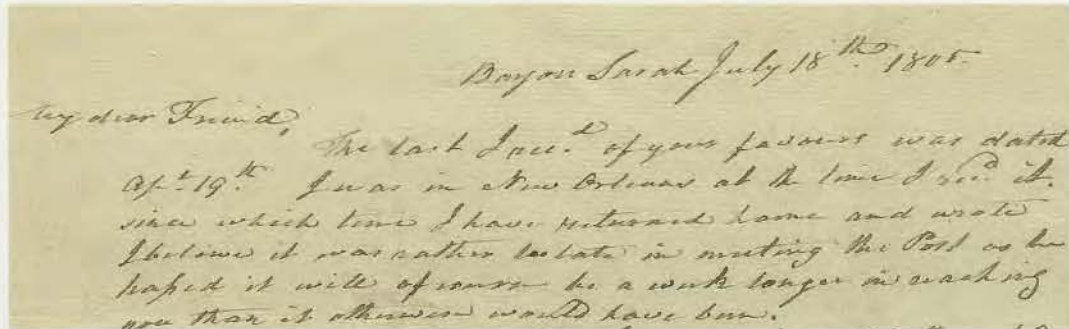 Bayou Sarah July 18th. 1805.
My dear Friend,
The last I recd. of your favours was dated
Apl. 19th. I was in New Orleans at the time I recd it.
since which time I have returned home and wrote
I believe it was rather too late in meeting the Post as he
passed it will of course be a week longer in reaching
you than it otherwise would have been.